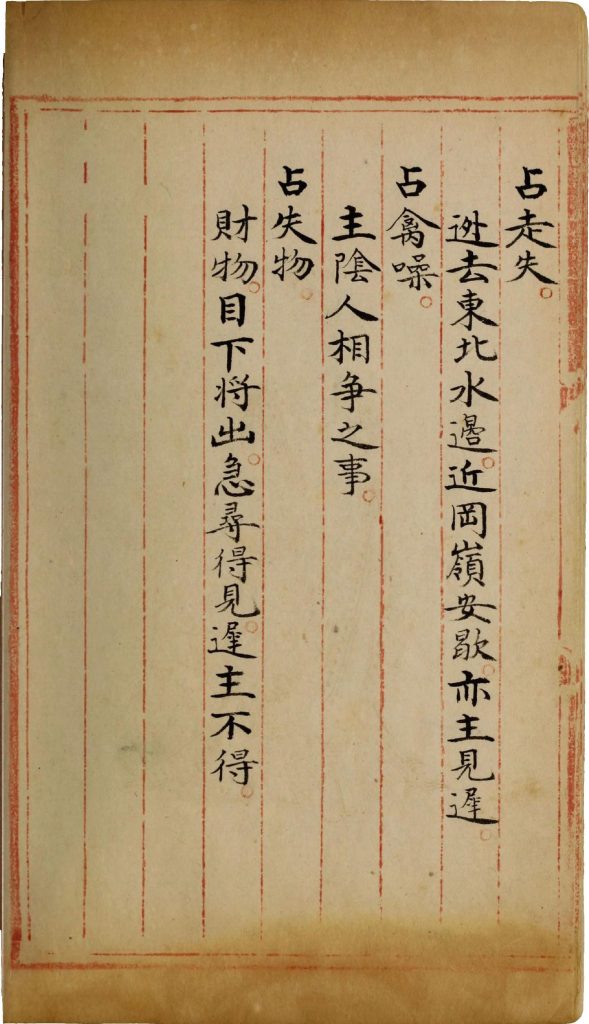 占走失。
逃去東北水邉。近岡嶺安歇。亦主見遲。
占禽噪。
主陰人相争之事。
占失物。
財物。目下将出。急尋得見。遲主不得。